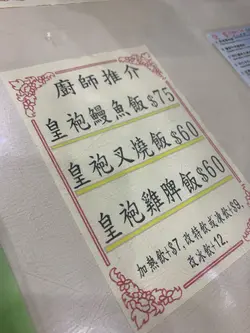 廚師推介
皇袍鰻魚飯 $75
皇袍叉燒飯 $60
皇袍雞脾飯 $60
加熱飲+$7.改特飲或凍飲+$9.
改冰飲+12.